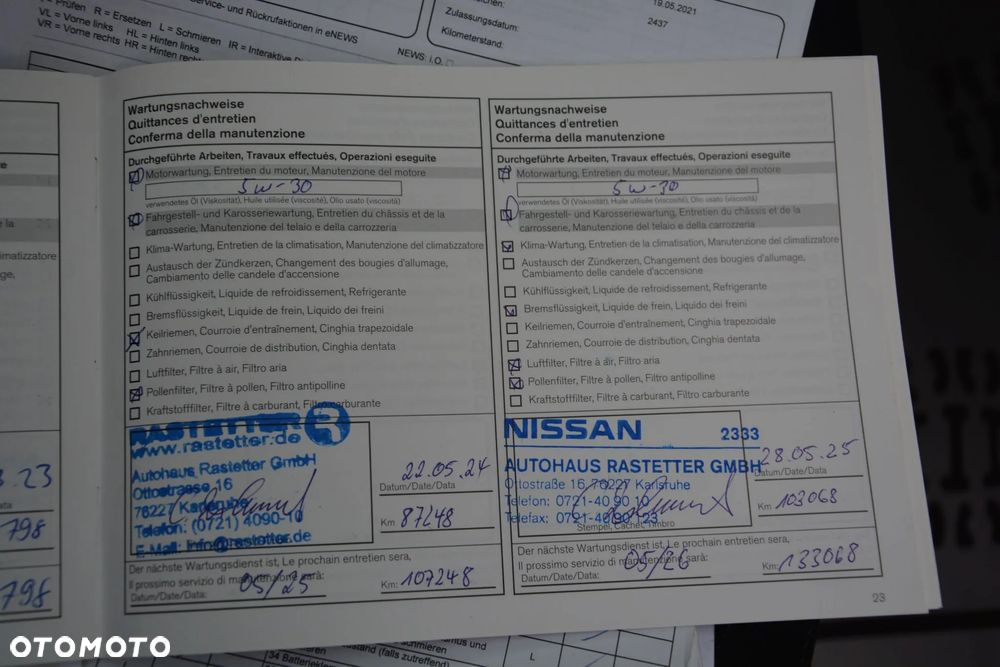 = Prüfen R = Ersetzen L = Schmieren
VL = Vorne links HL = Hinten links
VR = Vorne rechts HR = Hinten
IR =
Service- und Rückrufaktionen in eNEWS
NEWS: i.O.
19.05.2021
Zulassungsdatum:
2437
Kilometerstand:
Wartungsnachweise
Quittances d'entretien
Conferma della manutenzione
Durchgeführte Arbeiten, Travaux effectués, Operazioni eseguite
Motorwartung, Entretien du moteur, Manutenzione del motore
5W-30
verwendetes Öl (Viskosität), Huile utilisée (viscosité), Olio usato (viscosità)
Fahrgestell- und Karosseriewartung, Entretien du châssis et de la
carrosserie, Manutenzione del telaio e della carrozzeria
Klima-Wartung, Entretien de la climatisation, Manutenzione del climatizzatore
Austausch der Zündkerzen, Changement des bougies d'allumage,
Cambiamento delle candele d'accensione
Kühlflüssigkeit, Liquide de refroidissement, Refrigerante
Bremsflüssigkeit, Liquide de frein, Liquido dei freini
Keilriemen, Courroie d'entraînement, Cinghia trapezoidale
Zahnriemen, Courroie de distribution, Cinghia dentata
Luftfilter, Filtre à air, Filtro aria
Pollenfilter, Filtre à pollen, Filtro antipolline
Kraftstofffilter, Filtre à carburant, Filtro carburante
RASTETTER R
www.rastetter.de
Autohaus Rastetter GmbH
Ottostrasse 16
76227 Karlsruhe
Telefon: (0721) 4090-10
E-Mail: info@rastetter.de
22.05.24
Datum/Date/Data
Km 87248
Der nächste Wartungsdienst ist, Le prochain entretien sera,
Il prossimo servizio di manutenzione sarà:
05/25
Datum/Date/Data:
Km: 107248
Wartungsnachweise
Quittances d'entretien
Conferma della manutenzione
Durchgeführte Arbeiten, Travaux effectués, Operazioni eseguite
Motorwartung, Entretien du moteur, Manutenzione del motore
5W-30
verwendetes Öl (Viskosität), Huile utilisée (viscosité), Olio usato (viscosità)
Fahrgestell- und Karosseriewartung, Entretien du châssis et de la
carrosserie, Manutenzione del telaio e della carrozzeria
Klima-Wartung, Entretien de la climatisation, Manutenzione del climatizzatore
Austausch der Zündkerzen, Changement des bougies d'allumage,
Cambiamento delle candele d'accensione
Kühlflüssigkeit, Liquide de refroidissement, Refrigerante
Bremsflüssigkeit, Liquide de frein, Liquido dei freini
Keilriemen, Courroie d'entraînement, Cinghia trapezoidale
Zahnriemen, Courroie de distribution, Cinghia dentata
Luftfilter, Filtre à air, Filtro aria
Pollenfilter, Filtre à pollen, Filtro antipolline
Kraftstofffilter, Filtre à carburant, Filtro carburante
NISSAN 2333
AUTOHAUS RASTETTER GMBH
Ottostraße 16, 76227 Karlsruhe
Telefon: 0721-40 90 10
Telefax: 0721-40 90 123
Stempel, Cachet, Timbro
28.05.25
Datum/Date/Data
Km 103068
Der nächste Wartungsdienst ist, Le prochain entretien sera,
Il prossimo servizio di manutenzione sarà:
05/26
Datum/Date/Data:
Km: 133068
23
climatizzatore
.23
798
798
OTOMOTO
schmieren
stand (falls zutreffend)
L